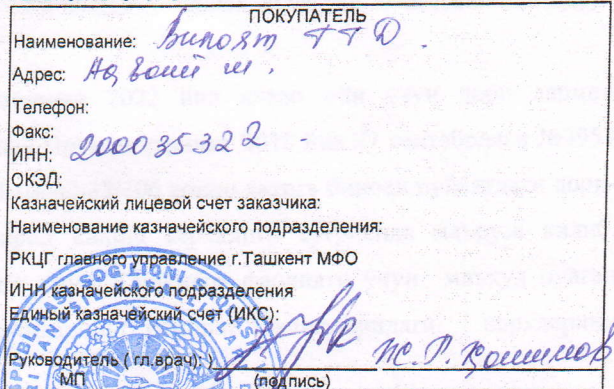 ПОКУПАТЕЛЬ
Наименование: Вилоят ТТД.
Адрес:
Телефон:
Факс:
ИНН: 200035322
ОКЭД:
Казначейский лицевой счет заказчика:
Наименование казначейского подразделения:
РКЦГ главного управление г.Ташкент МФО
ИНН казначейского подразделения
Единый казначейский счет (ИКС):
Руководитель ( гл.врач): ) Ж.Р.
МП (подпись)
SOG'LIQNI